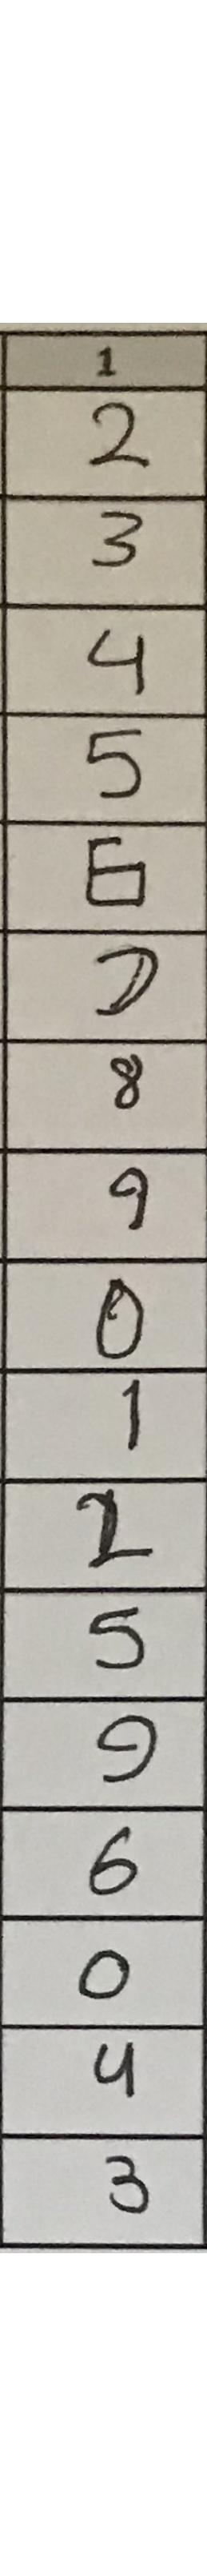 1
2
3
4
5
6
7
8
9
0
1
2
5
9
6
0
4
3